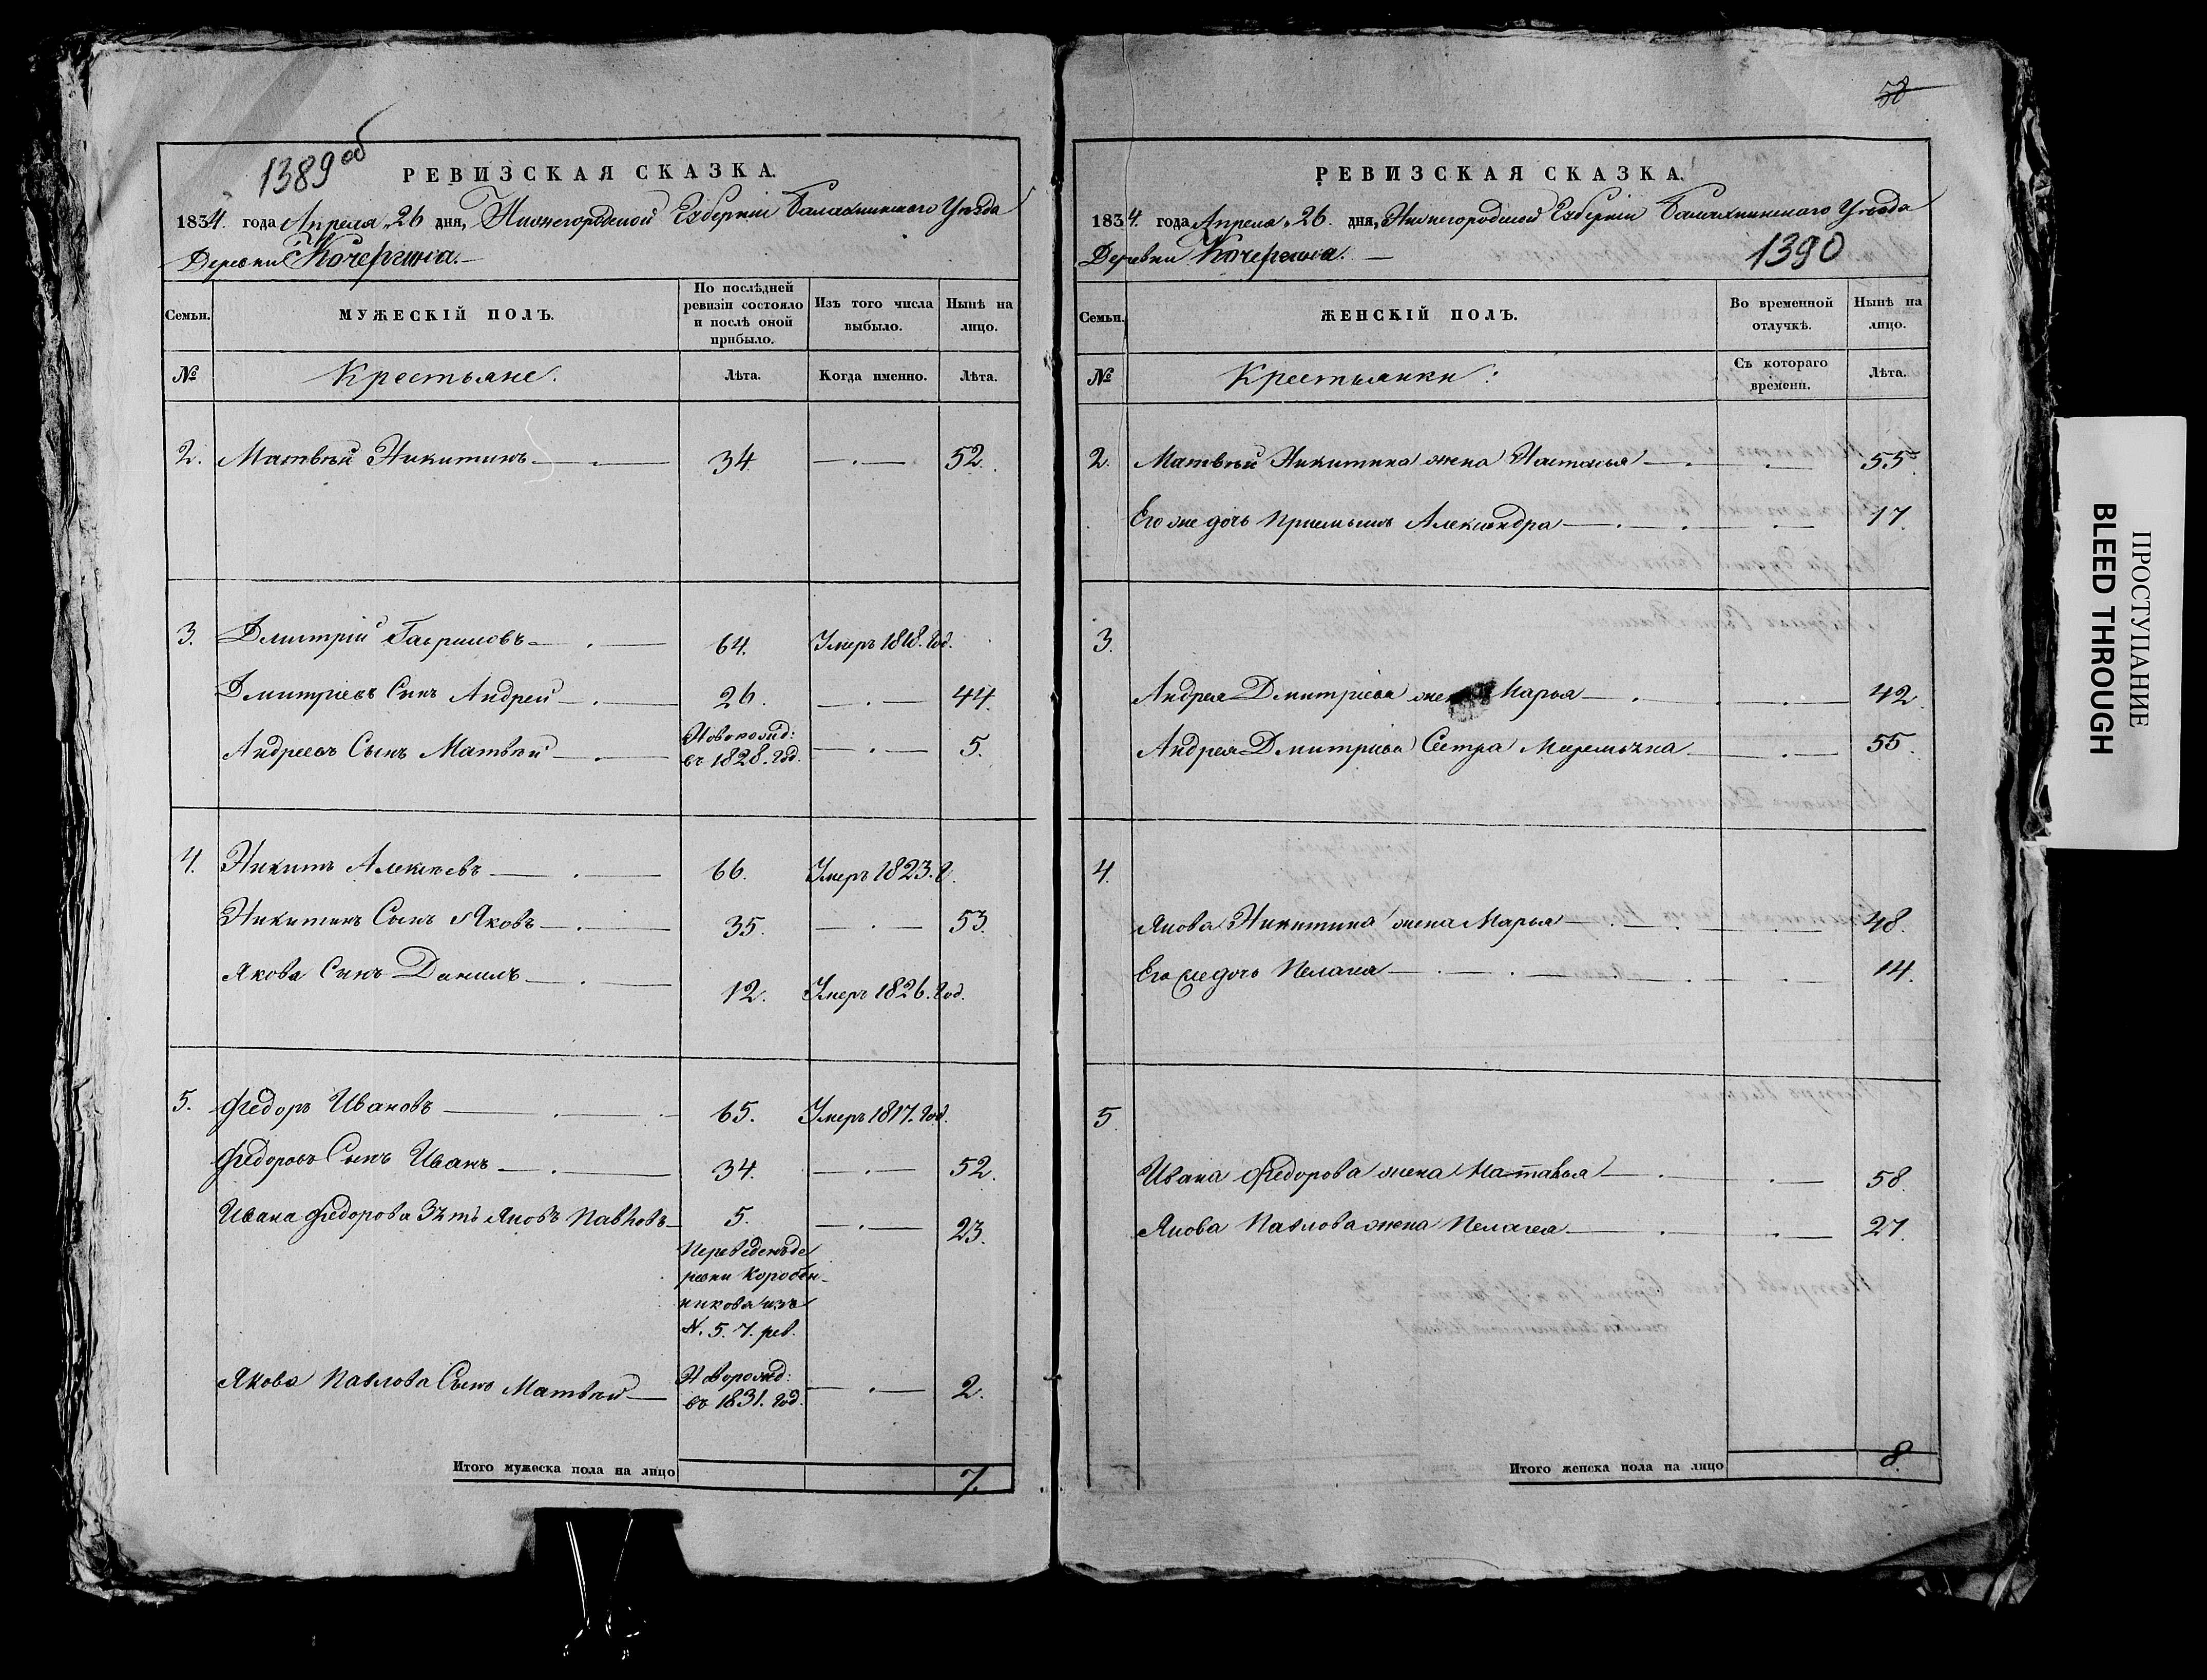 1389 об
РЕВИЗСКАЯ СКАЗКА.
1834. года Апреля „26 дня, Нижегородской Губернiи Балахнинскаго Уѣзда
Деревни Кочергина.
Семьи.
МУЖЕСКIЙ ПОЛЪ.
По послѣдней ревизiи состояло и послѣ оной прибыло.
Изъ того числа выбыло.
Нынѣ на лицо.
№
Крестьяне.
Лѣта.
Когда именно.
Лѣта.
2. Матвѣй Никитинъ 34 52.
3. Дмитрiй Гавриловъ 64. Умеръ 1818. год.
Дмитрiевъ Сынъ Андрей 26. 44.
Андреевъ Сынъ Матвѣй Новорожд: въ 1828. год. 5.
4. Никита Алексѣевъ 66. Умеръ 1823. г.
Никитинъ Сынъ Яковъ 35. 53.
Якова Сынъ Данилъ 12. Умеръ 1826. год.
5. Федоръ Ивановъ 65. Умеръ 1817. год.
Федоровъ Сынъ Иванъ 34. 52.
Ивана Федорова Зять Яковъ Павловъ 5. 23.
Переведенъ де
ревни Коробей
никова изъ
N. 5. 7. рев.
Якова Павлова Сынъ Матвѣй Новорожд: въ 1831. год. 2.
Итого мужеска пола на лицо 7.
58
РЕВИЗСКАЯ СКАЗКА.
1834. года Апреля „26. дня, Нижегородской Губернiи Балахнинскаго Уѣзда
Деревни Кочергина.
1390
Семьи.
ЖЕНСКIЙ ПОЛЪ.
Во временной отлучкѣ.
Нынѣ на лицо.
№
Крестьянки:
Съ котораго времени.
Лѣта.
2. Матвѣй Никитина жена Настасья 55
Его же дочь Прiемышъ Александра 17.
3.
Андрея Дмитрiева жена Марья 42.
Андрея Дмитрiева Сестра 55.
4.
Якова Никитина жена Марья 48.
Его же дочь Пелагея 14.
5.
Ивана Федорова жена 58.
Якова Павлова жена Пелагея 27.
Итого женска пола на лицо 8.
ПРОСТУПАНИЕ
BLEED THROUGH